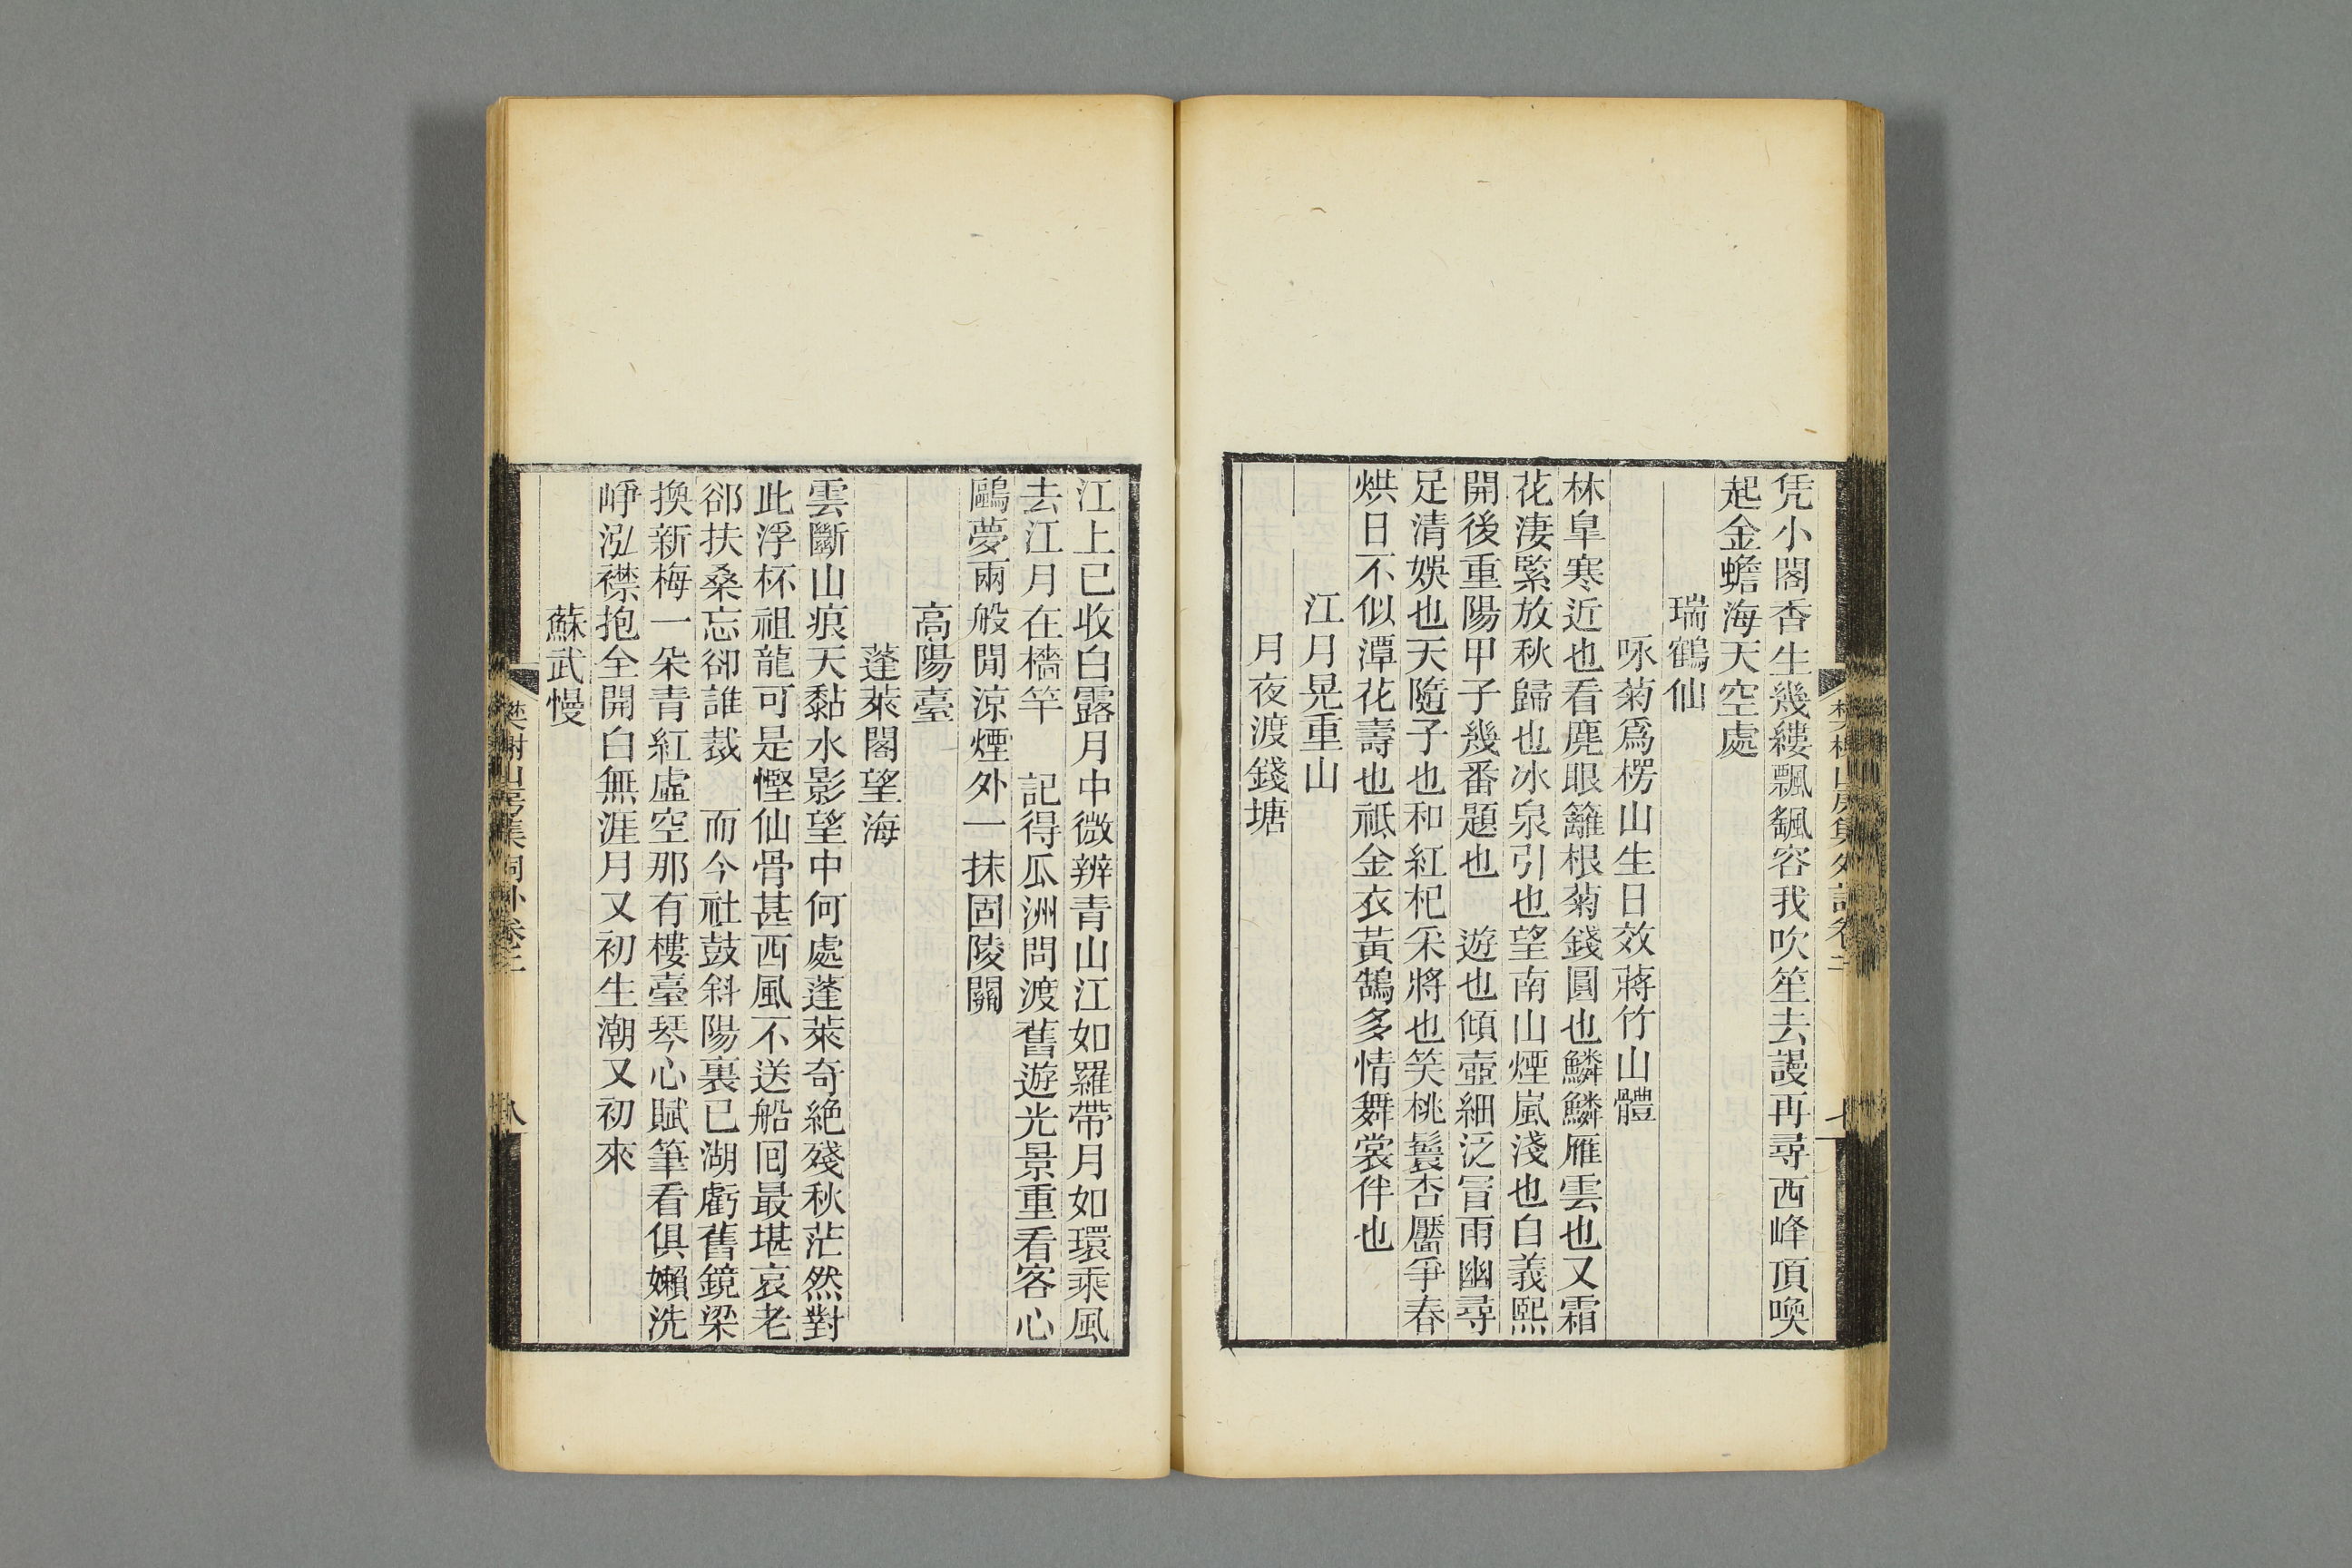 凭小閣香生幾縷飄颻容我吹笙去謾再尋西峰頂喚
起金蟾海天空處
瑞鶴仙
咏菊爲楞山生日效蔣竹山體
林皐寒近也看麂眼籬根菊錢圓也鱗鱗雁雲也又霜
花淒緊放秋歸也冰泉引也望南山煙嵐淺也自義熙
開後重陽甲子幾番題也　遊也傾壺細泛冒雨幽尋
足清娛也天隨子也和紅杞采將也笑桃鬟杏靨爭春
烘日不似潭花壽也祗金衣黃鵠多情舞裳伴也
江月晃重山
月夜渡錢塘
江上已收白露月中微辨青山江如羅帶月如環乘風
去江月在檣竿　記得瓜洲問渡舊遊光景重看客心
鷗夢兩般閒涼煙外一抹固陵關
高陽臺
蓬萊閣望海
雲斷山痕天黏水影望中何處蓬萊奇絶殘秋茫然對
此浮杯祖龍可是慳仙骨甚西風不送船囘最堪哀老
郤扶桑忘卻誰栽　而今社鼓斜陽裏已湖虧舊鏡梁
換新梅一朵青紅虛空那有樓臺琴心賦筆看俱嬾洗
崢泓襟抱全開白無涯月又初生潮又初來
蘇武慢
樊榭山房集詞外卷二
八